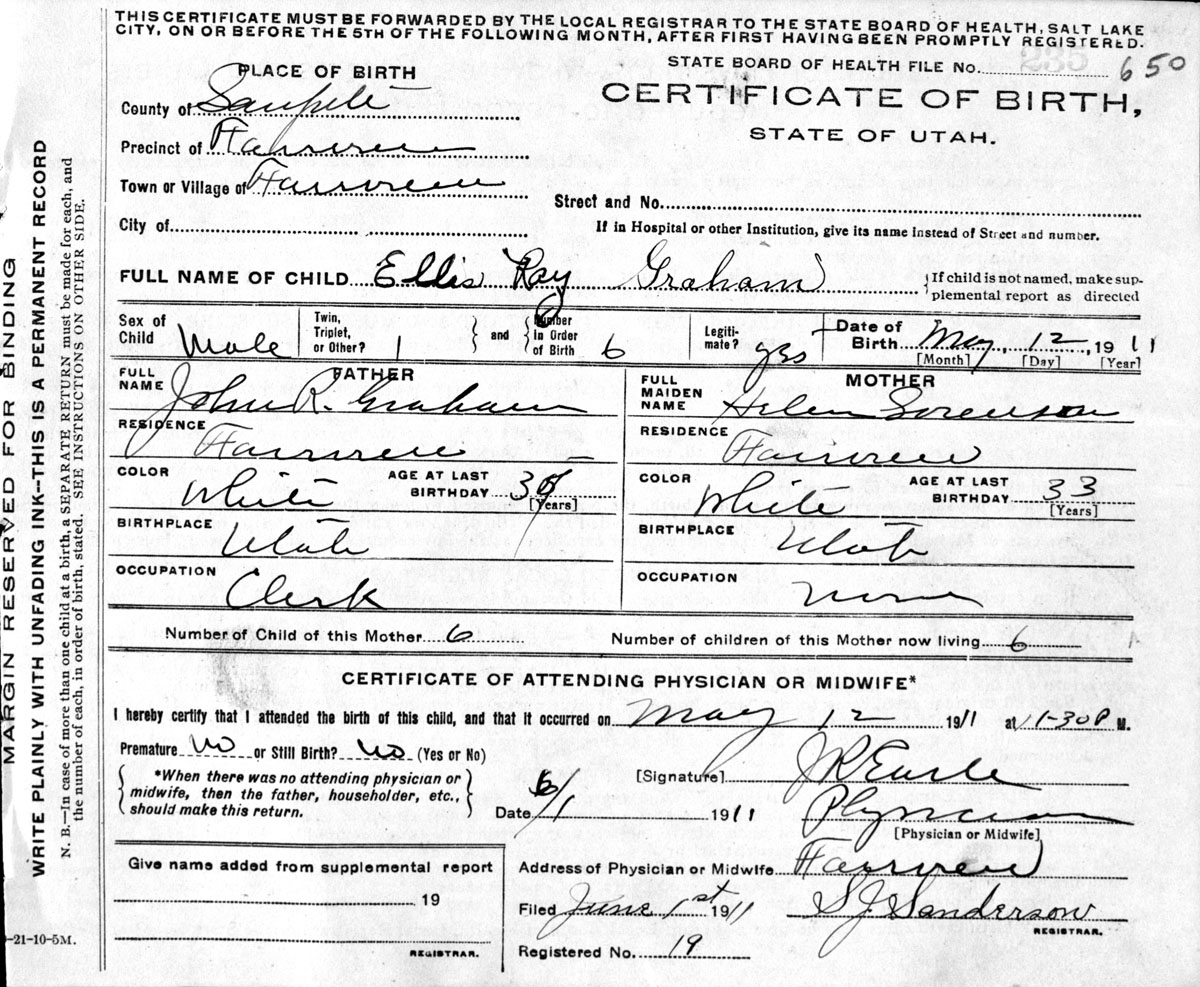 THIS CERTIFICATE MUST BE FORWARDED BY THE LOCAL REGISTRAR TO THE STATE BOARD OF HEALTH, SALT LAKE
CITY, ON OR BEFORE THE 5TH OF THE FOLLOWING MONTH, AFTER FIRST HAVING BEEN PROMPTLY REGISTERED.
PLACE OF BIRTH
STATE BOARD OF HEALTH FILE No. 650
County of Sanpete
CERTIFICATE OF BIRTH,
STATE OF UTAH.
Precinct of Fairview
Town or Village of Fairview
Street and No.
City of
If in Hospital or other Institution, give its name instead of Street and number.
FULL NAME OF CHILD Ellis Ray Graham
If child is not named, make sup-
plemental report as directed
Sex of Child Male
Twin, Triplet, or Other? 1
and
Number In Order of Birth 6
Legiti-mate? yes
Date of Birth May 12, 1911
[Month] [Day] [Year]
FATHER
FULL NAME John R. Graham
MOTHER
FULL MAIDEN NAME Helen Sorenson
RESIDENCE Fairview
RESIDENCE Fairview
COLOR White
AGE AT LAST BIRTHDAY 35
[Years]
COLOR White
AGE AT LAST BIRTHDAY 33
[Years]
BIRTHPLACE Utah
BIRTHPLACE Utah
OCCUPATION Clerk
OCCUPATION None
Number of Child of this Mother 6
Number of children of this Mother now living 6
CERTIFICATE OF ATTENDING PHYSICIAN OR MIDWIFE*
I hereby certify that I attended the birth of this child, and that it occurred on May 12 1911 at 1-30 P M.
Premature No or Still Birth? No (Yes or No)
*When there was no attending physician or
midwife, then the father, householder, etc.,
should make this return.
[Signature] J R Earle
Date 6/1 1911
Physician
[Physician or Midwife]
Give name added from supplemental report
19
REGISTRAR.
Address of Physician or Midwife Fairview
Filed June 1st 1911 S J Sanderson
REGISTRAR.
Registered No. 19
-21-10-5M.
MARGIN RESERVED FOR BINDING
WRITE PLAINLY WITH UNFADING INK--THIS IS A PERMANENT RECORD
N. B.—In case of more than one child at a birth, a SEPARATE RETURN must be made for each, and
the number of each, in order of birth, stated. SEE INSTRUCTIONS ON OTHER SIDE.